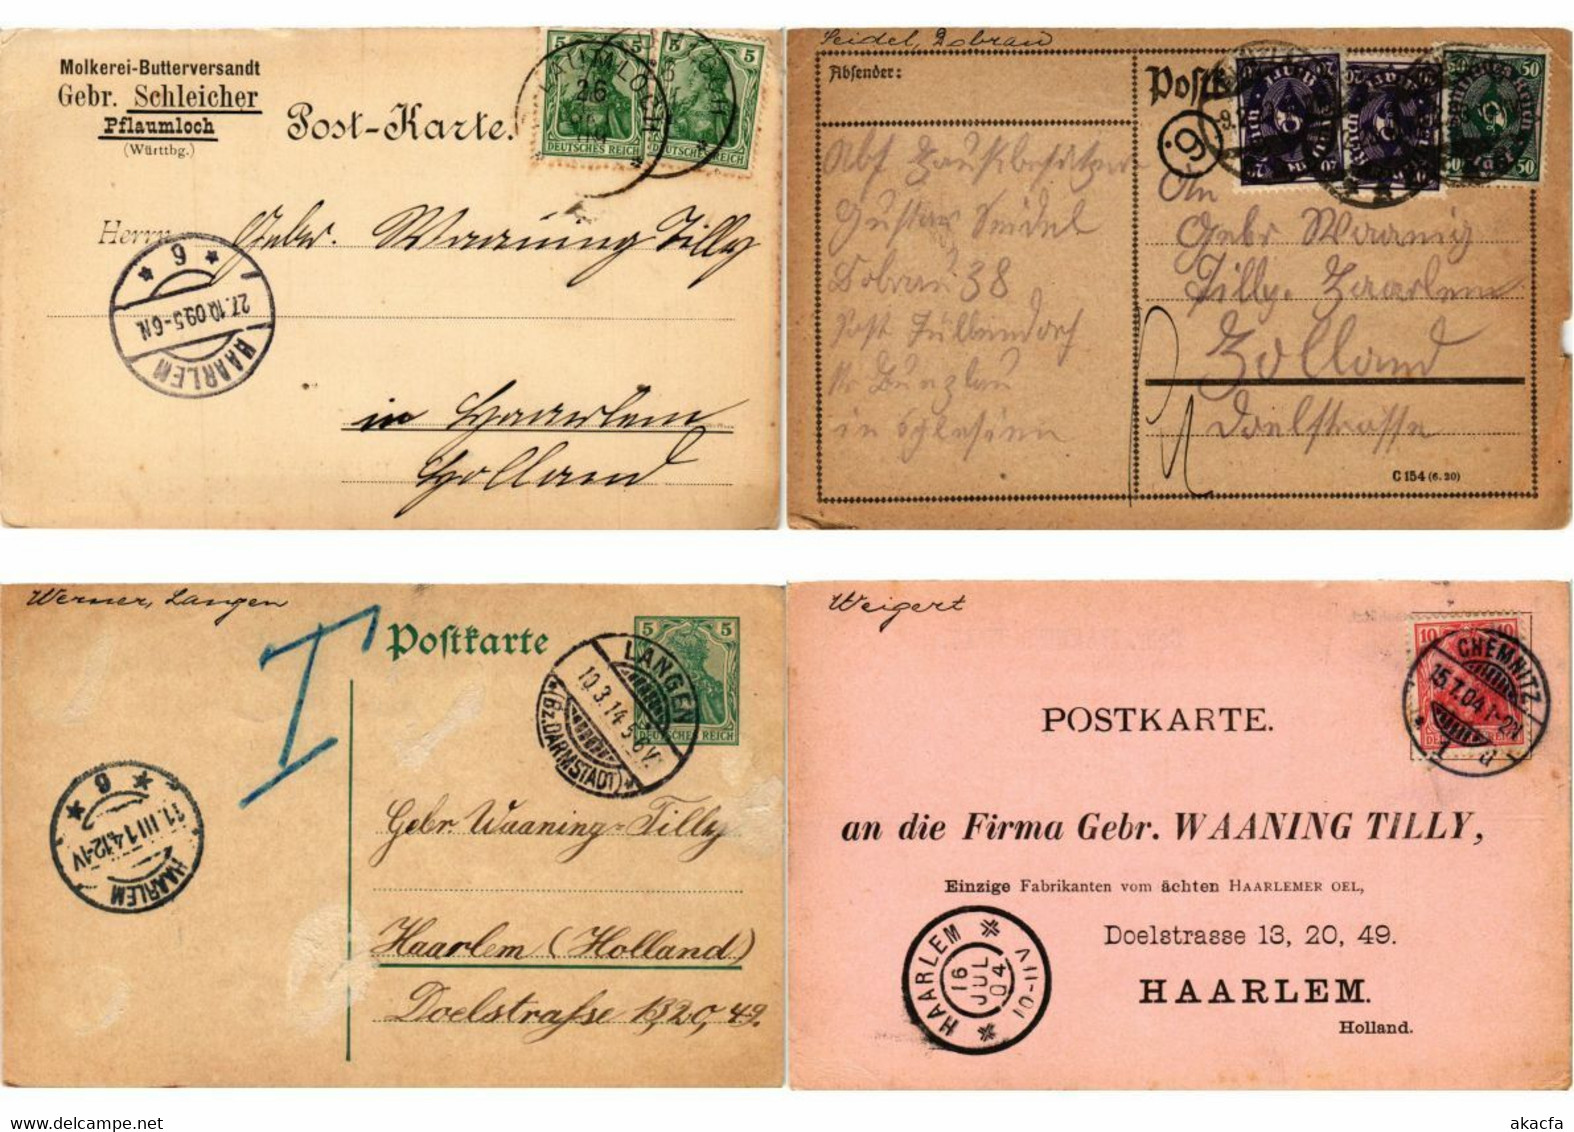 Molkerei-Butterversandt
Gebr. Schleicher
Pflaumloch
(Württbg.)
Post-Karte.
5 5
DEUTSCHES REICH
5
DEUTSCHES REICH
PFLAUMLOCH
26
Herrn
Gebr. Waaning Tilly
in Haarlem
Holland
6
27.10.09.5-6N.
HAARLEM
Seidel, Dobrau
Absender:
Postk
Abs Hausbesitzer
Gustav Seidel
Dobrau 38
Post Tillendorf
Kr Bunzlau
in Schlesien
6.
20
20
50 50
50 50
An
Gebr Waanig
Tilly. Haarlem
Holland
Doelstrasse
C 154 (6. 20)
Werner, Langen
I
Postkarte
5 5
DEUTSCHES REICH
LANGEN
10.3.14.5-6V.
(Bz. DARMSTADT)
6
11.III.14.12-1V
HAARLEM
Gebr. Waaning-Tilly
Haarlem (Holland)
Doelstraße 13,20,49.
Weigert
10 10
CHEMNITZ
15.7.04.1-2N.
POSTKARTE.
an die Firma Gebr. WAANING TILLY,
Einzige Fabrikanten vom ächten HAARLEMER OEL,
Doelstrasse 13, 20, 49.
HAARLEM.
Holland.
HAARLEM
16
JUL
04
10-11V
akacfa